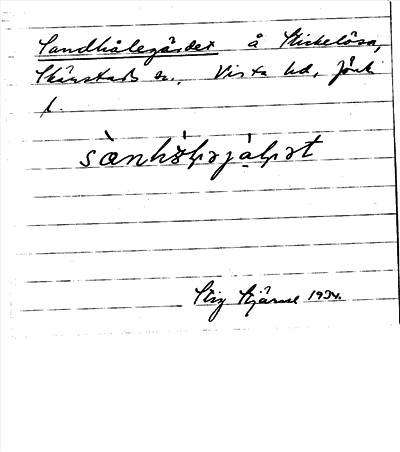 Sandhålegärdet å Stickelösa,
Skärstads sn., Vista hd, Jönk
l.
sànhɷ̀ꞎəjàꞎət
Stig Stjärne 1934.